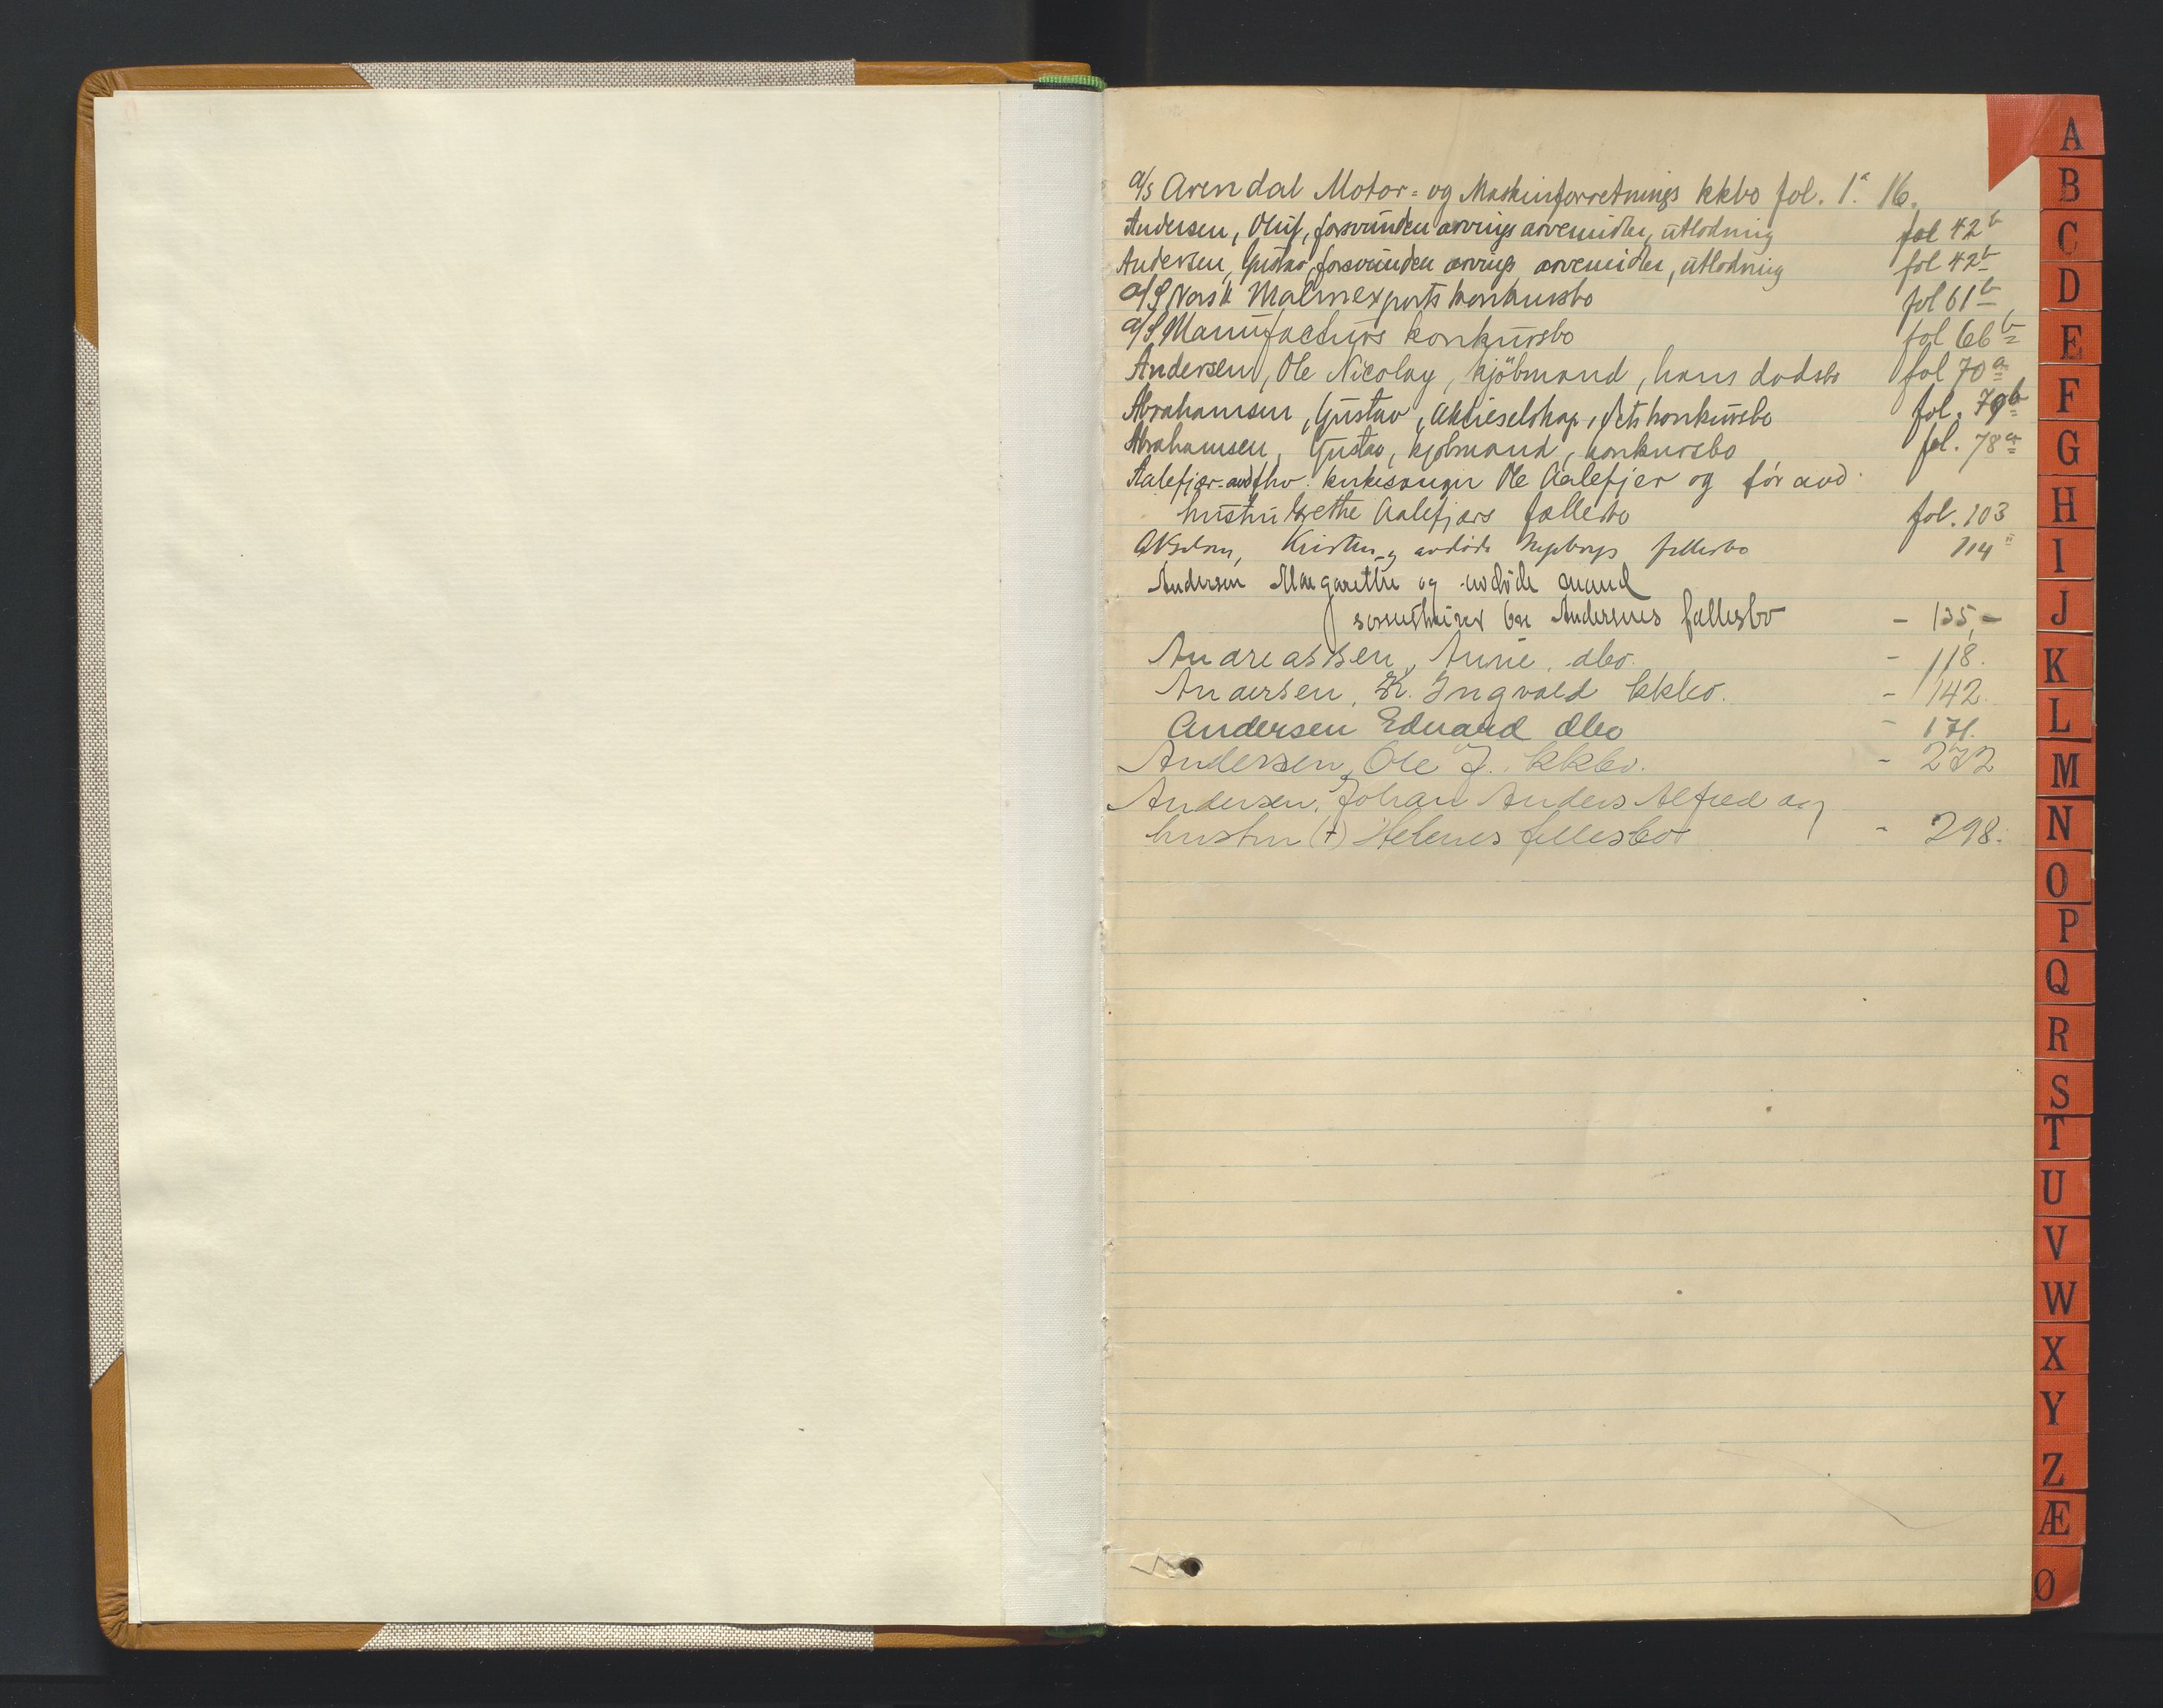 a/s Arendal Motor= og Maskinforretnings kkbo fol. 1a 16.
Andersen, Oluf, forsvunden arvings arvemidler, utlodning fol 42b
Andersen, Gustav, forsvunden arvings arvemidler, utlodning fol 42b
a/S Norsk Malmexports konkursbo fol 61b
a/S Manufacturs konkursbo fol 66b
Andersen, Ole Nicolay, kjöbmand, hans dødsbo fol 70a
Abrahamsen, Gustav, Aktieselskap, dets konkursbo fol. 79b
Abrahamsen, Gustav, kjøbmand, konkursbo fol. 78a
Aalefjær - fhv. kirkesanger Ole Aalefjær og før avd.
hustru Grethe Aalefjærs fællesbo fol. 103
Kristen og avdøde fellesbo 114
Andersen Margarethe og avdøde mand
Andersens fællesbo - 135,-
Andreassen, Anne. dbo. - 118.
Andersen, K. Ingvald kkbo. - 142.
Andersen Edvard dbo - 171.
Andersen, Ole J. kkbo. - 272
Andersen, Johan Anders Alfred og
hustru (+) Helenes fellesbo - 298.
A
B
C
D
E
F
G
H
I
J
K
L
M
N
O
P
Q
R
S
T
U
V
W
X
Y
Z
Æ
Ø